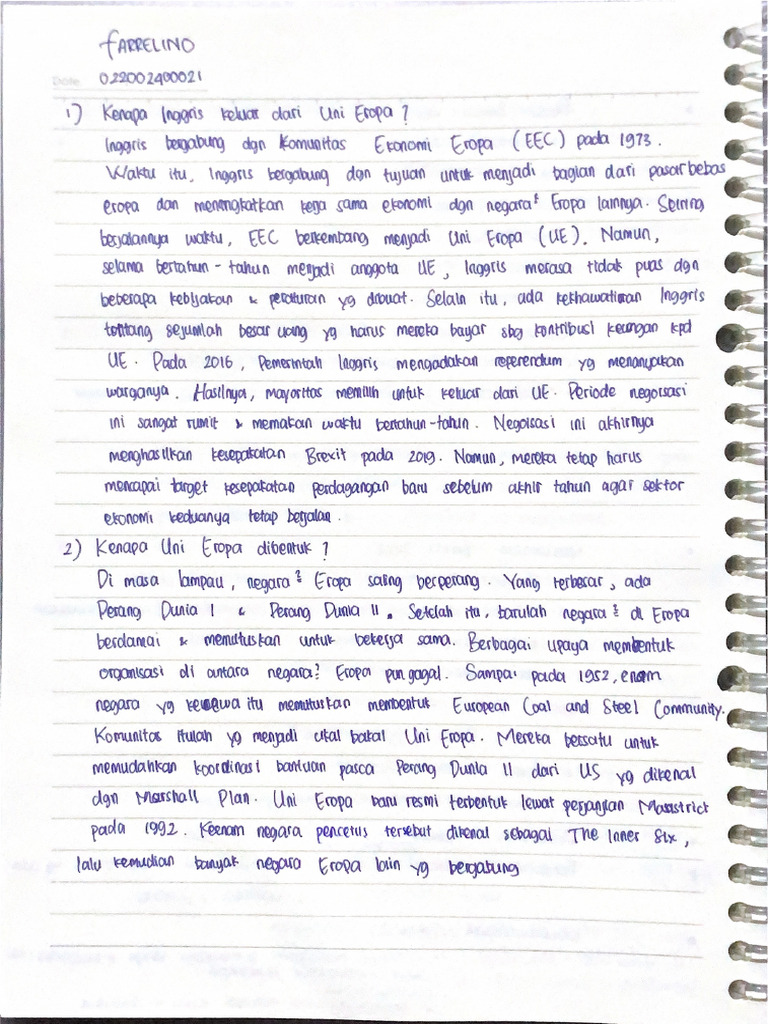 FARRELINO
Date 022002400021
1) Kenapa Inggris keluar dari Uni Eropa?
Inggris bergabung dgn Komunitas Ekonomi Eropa (EEC) pada 1973.
Waktu itu, Inggris bergabung dgn tujuan untuk menjadi bagian dari pasar bebas
eropa dan meningkatkan kerja sama ekonomi dgn negara² Eropa lainnya. Seiring
berjalannya waktu, EEC berkembang menjadi Uni Eropa (UE). Namun,
selama bertahun-tahun menjadi anggota UE, Inggris merasa tidak puas dgn
beberapa kebijakan & peraturan yg dibuat. Selain itu, ada kekhawatiran Inggris
tentang sejumlah besar uang yg harus mereka bayar sbg kontribusi keuangan kpd
UE. Pada 2016, Pemerintah Inggris mengadakan referendum yg menanyakan
warganya. Hasilnya, mayoritas memilih untuk keluar dari UE. Periode negosiasi
ini sangat rumit & memakan waktu bertahun-tahun. Negosiasi ini akhirnya
menghasilkan kesepakatan Brexit pada 2019. Namun, mereka tetap harus
mencapai target kesepakatan perdagangan baru sebelum akhir tahun agar sektor
ekonomi keduanya tetap berjalan.
2) Kenapa Uni Eropa dibentuk?
Di masa lampau, negara² Eropa saling berperang. Yang terbesar, ada
Perang Dunia I & Perang Dunia II. Setelah itu, barulah negara² di Eropa
berdamai & memutuskan untuk bekerja sama. Berbagai upaya membentuk
organisasi di antara negara² Eropa pun gagal. Sampai pada 1952, enam
negara yg kecewa itu memutuskan membentuk European Coal and Steel Community.
Komunitas itulah yg menjadi cikal bakal Uni Eropa. Mereka bersatu untuk
memudahkan koordinasi bantuan pasca Perang Dunia II dari US yg dikenal
dgn Marshall Plan. Uni Eropa baru resmi terbentuk lewat perjanjian Maastrict
pada 1992. Keenam negara pencetus tersebut dikenal sebagai The Inner Six,
lalu kemudian banyak negara Eropa lain yg bergabung